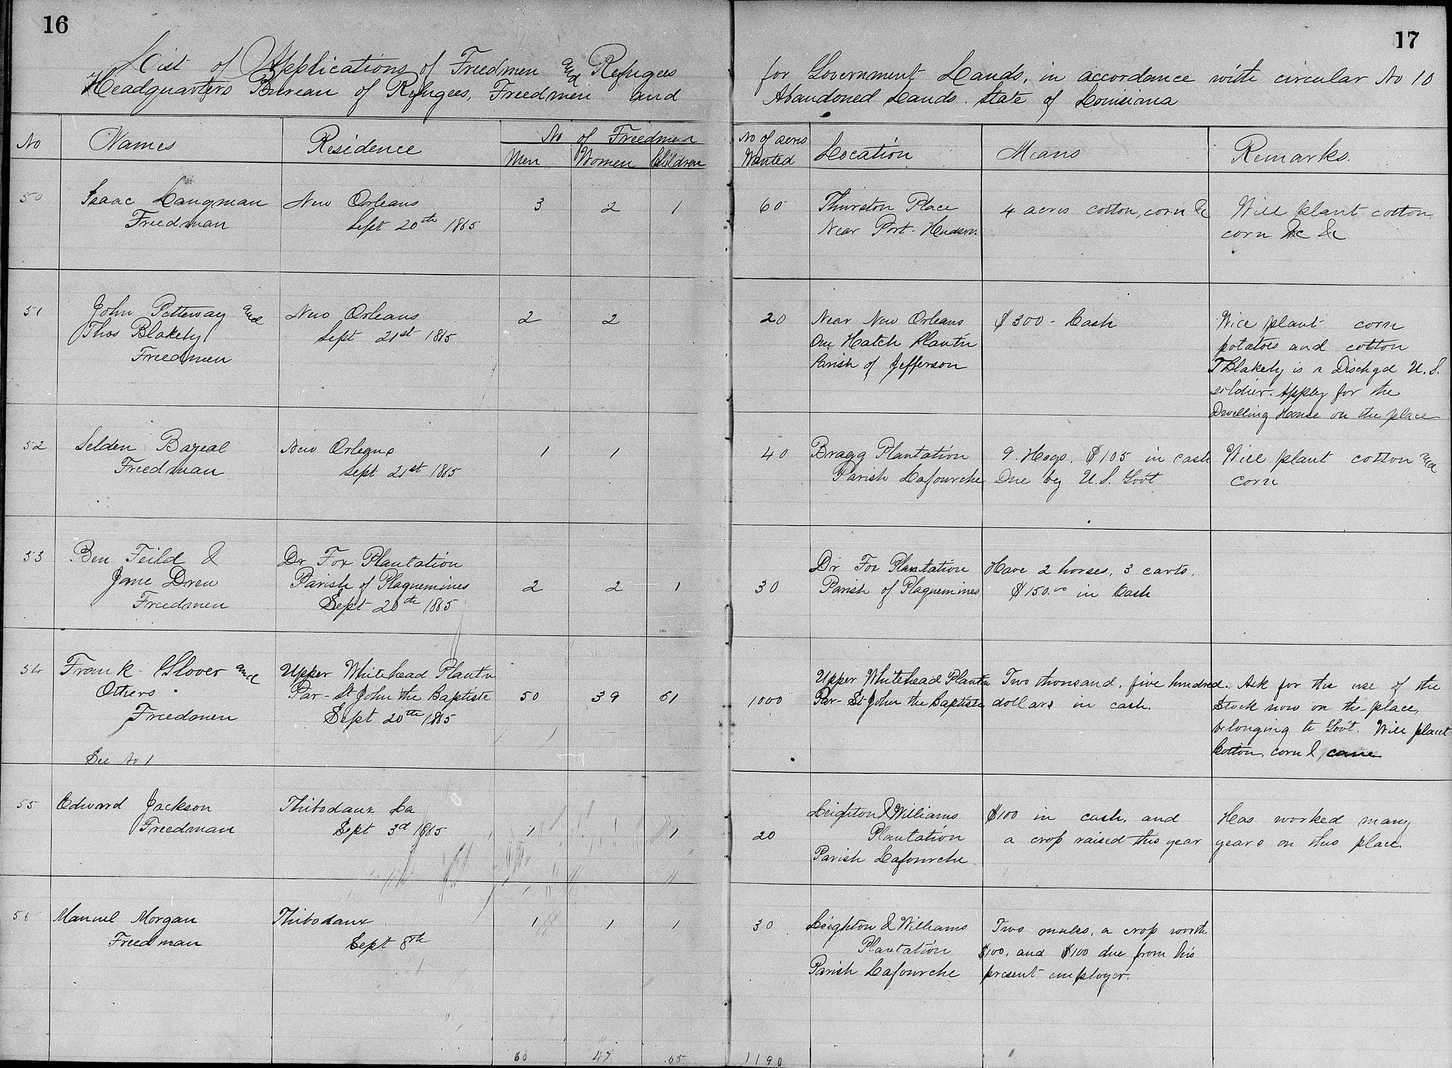 16
List of Applications of Freedmen and Refugees
Headquarters Bureau of Refugees, Freedmen and
No Names Residence No of Freedmen
Men Women Children
50 Isaac Langman New Orleans 3 2 1
Freedman Sept 20th 1865
51 John Petteway and New Orleans 2 2
Thos Blakely Sept 21st 1865
Freedmen
52 Selden Bazeal New Orleans 1 1
Freedman Sept 21st 1865
53 Ben Feild & Dr Fox Plantation
Jane Drew Parish of Plaquemines 2 2 1
Freedmen Sept 20th 1865
54 Frank Glover and Upper Whitehead Plantn
Others Par- St John the Baptiste 50 39 61
Freedmen Sept 20th 1865
See No 1
55 Edward Jackson Thibodaux La
Freedman Sept 3d 1865 1 1
56 Manuel Morgan Thibodaux 1 1 1
Freedman Sept 8th
60 47 65
17
for Government Lands, in accordance with circular No 10
Abandoned Lands. State of Louisiana
No of acres
Wanted Location Means Remarks.
60 Thurston Place 4 acres cotton, corn &c Will plant cotton
Near Port-Hudson corn &c &c
20 Near New Orleans $300 - Cash Will plant corn
on Hatch Plantn potatoes and cotton
Parish of Jefferson T Blakely is a Dischgd U.S.
soldier. Apply for the
Dwelling House on the place
40 Bragg Plantation 9 Hogs, $105 in cash Will plant cotton and
Parish Lafourche Due by U.S. Govt corn
Dr Fox Plantation Have 2 horses, 3 carts,
30 Parish of Plaquemines $150.00 in Cash
Upper Whitehead Plantn Two thousand, five hundred. Ask for the use of the
1000 Par- St John the Baptiste dollars in cash. Stock now on the place
belonging to Govt. Will plant
Cotton, corn & cane
Leighton & Williams $100 in cash, and Has worked many
20 Plantation a crop raised this year years on this place
Parish Lafourche
30 Leighton & Williams Two mules, a crop worth
Plantation $100, and $100 due from his
Parish Lafourche present employer.
1190